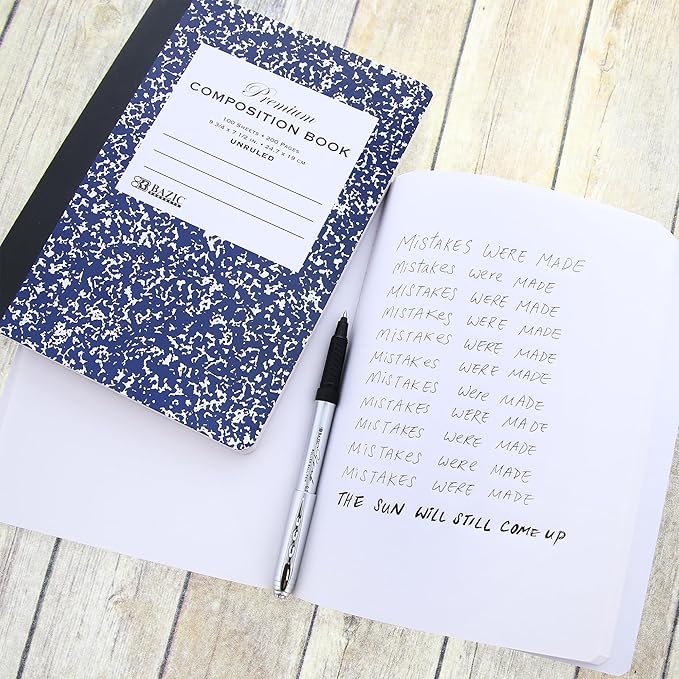 Premium
COMPOSITION BOOK
100 SHEETS • 200 PAGES
9 3/4 X 7 1/2 IN. • 24.7 X 19 CM
UNRULED
BAZIC
MISTAKES WERE MADE
MISTAKES WERE MADE
MISTAKES WERE MADE
MISTAKES WERE MADE
MISTAKES WERE MADE
MISTAKES WERE MADE
MISTAKES WERE MADE
MISTAKES WERE MADE
MISTAKES WERE MADE
MISTAKES WERE MADE
MISTAKES WERE MADE
THE SUN WILL STILL COME UP